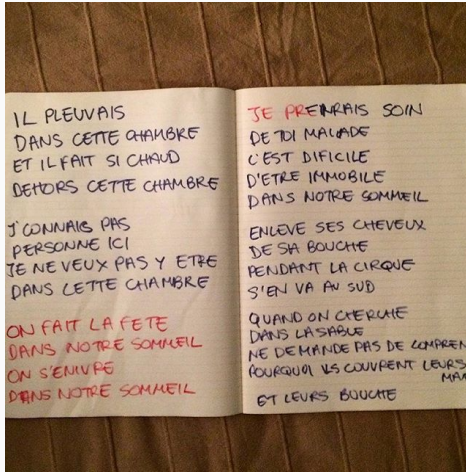 IL PLEUVAIS
DANS CETTE CHAMBRE
ET IL FAIT SI CHAUD
DEHORS CETTE CHAMBRE
J'CONNAIS PAS
PERSONNE ICI
JE NE VEUX PAS Y ETRE
DANS CETTE CHAMBRE
ON FAIT LA FETE
DANS NOTRE SOMMEIL
ON S'ENIVRE
DANS NOTRE SOMMEIL
JE PRENRAIS SOIN
DE TOI MALADE
C'EST DIFICILE
D'ETRE IMMOBILE
DANS NOTRE SOMMEIL
ENLEVE SES CHEVEUX
DE SA BOUCHE
PENDANT LA CIRQUE
S'EN VA AU SUD
QUAND ON CHERCHE
DANS LA SABLE
NE DEMANDE PAS DE COMPREN
POURQUOI ILS COUVRENT LEURS
MAI
ET LEURS BOUCHE